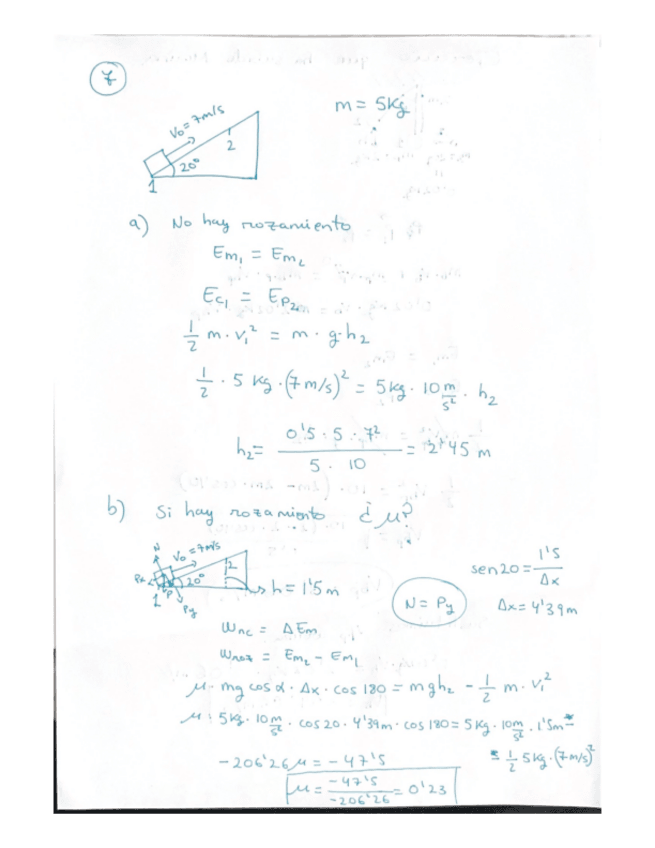 7
m = 5Kg
V₀ = 7m/s
2
20°
1
a) No hay rozamiento
Em₁ = Em₂
Ec₁ = Ep₂
1/2 m · v₁² = m · g · h₂
1/2 · 5 Kg · (7 m/s)² = 5Kg · 10 m/s² · h₂
h₂ = 0'5 · 5 · 7² / 5 · 10 = 2'45 m
b) Si hay rozamiento ¿μ?
N
V₀ = 7m/s
2
Px
20°
h = 1'5m
1
P
Py
N = Py
sen20 = 1'5/Δx
Δx = 4'39m
Wnc = ΔEm
Wroz = Em₂ - Em₁
μ · mg cos α · Δx · cos 180 = mgh₂ - 1/2 m · v₁²
μ · 5Kg · 10 m/s² · cos 20 · 4'39m · cos 180 = 5Kg · 10 m/s² · 1'5m -
- 1/2 5Kg · (7m/s)²
-206'26 μ = -47'5
μ = -47'5/-206'26 = 0'23